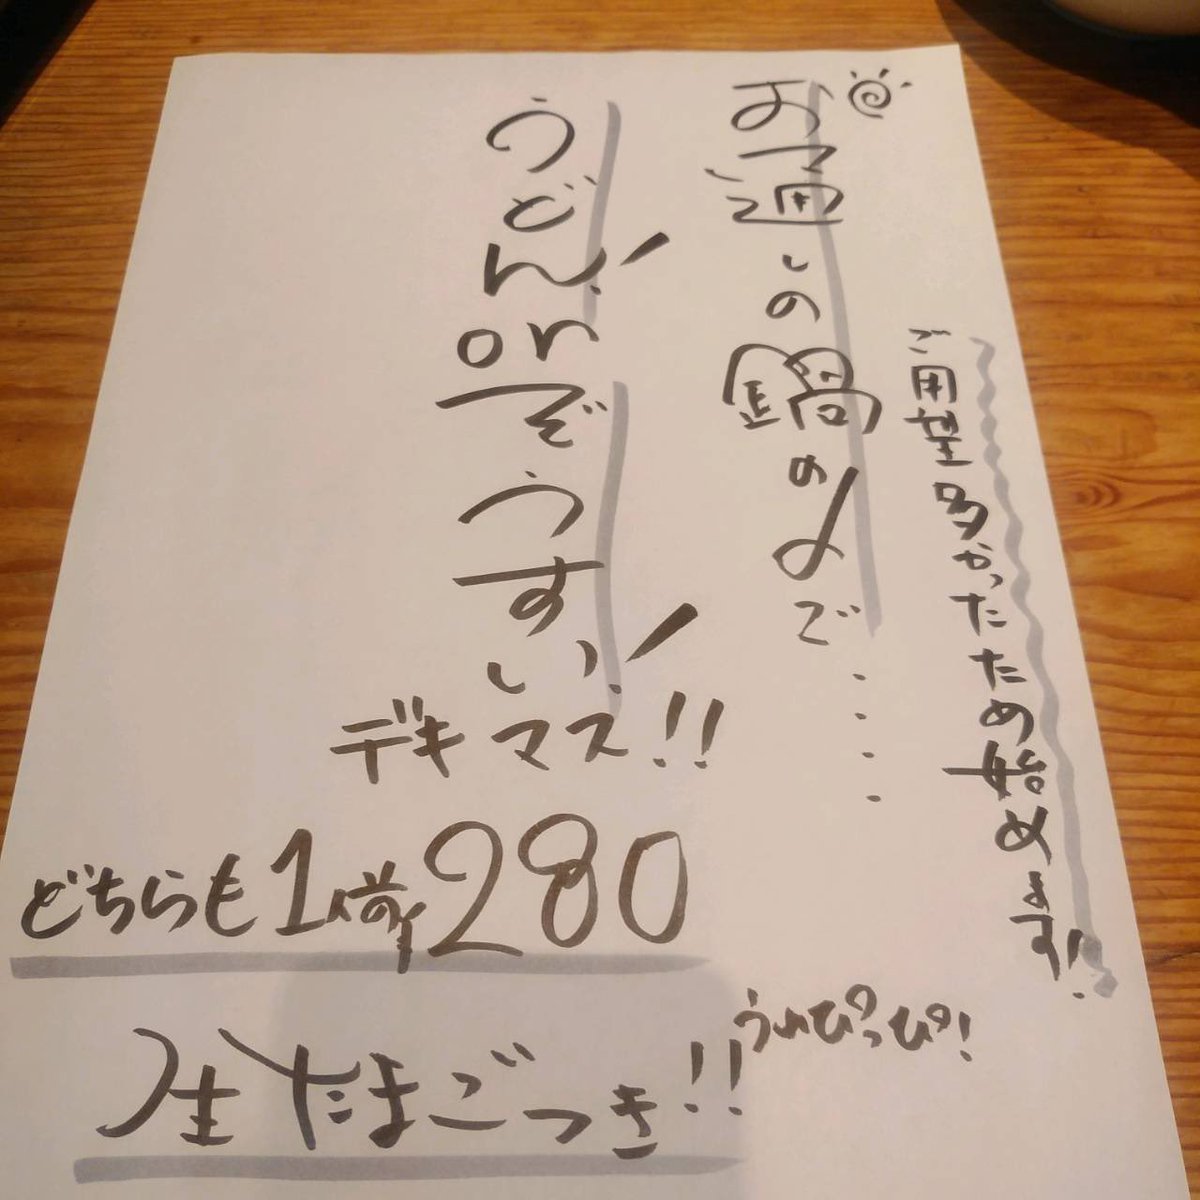 ご用望多かったため始めます!
お通しの鍋の〆で····
うどん! or ぞうすい!
デキマス!!
どちらも1人前280
生たまごつき!!
うめぴっぴ!